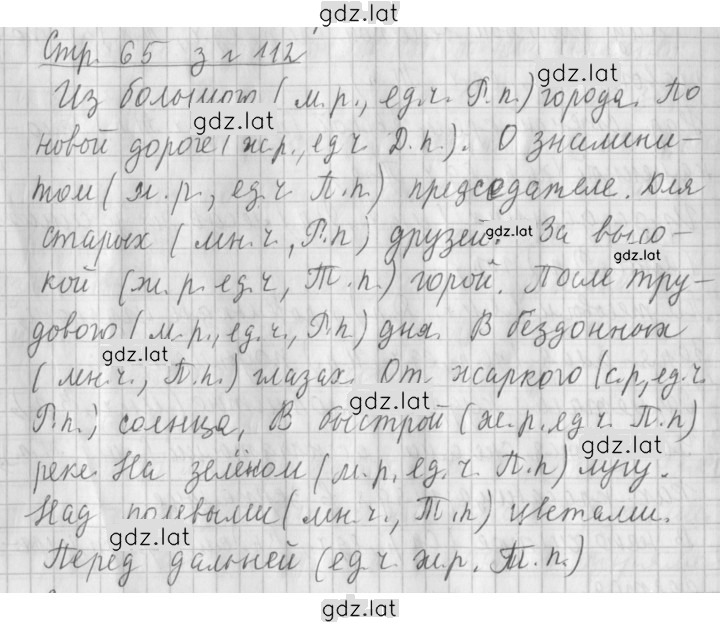 gdz.lat
Стр. 65 з г 112
Из большого (м.р., ед.ч. Р.п.) города. По
gdz.lat
gdz.lat
новой дороге (ж.р., ед ч Д.п.). О знамени-
том (м.р., ед.ч П.п.) председателе. Для
старых (мн.ч., Р.п) друзей. За высо-
gdz.lat
gdz.lat
кой (ж.р. ед.ч, Т.п.) горой. После тру-
дового (м.р., ед.ч., Р.п) дня. В бездонных
gdz.lat
(мн.ч., П.п.) глазах. От жаркого (с.р, ед.ч.
gdz.lat
Р.п.) солнца, В быстрой (ж.р. ед ч. П.п)
gdz.lat
реке. На зелёном (м.р, ед.ч. П.п) лугу.
Над полевыми (мн.ч., Т.п) цветами.
gdz.lat
Перед дальней (ед.ч. ж.р. Т.п.)
gdz.lat